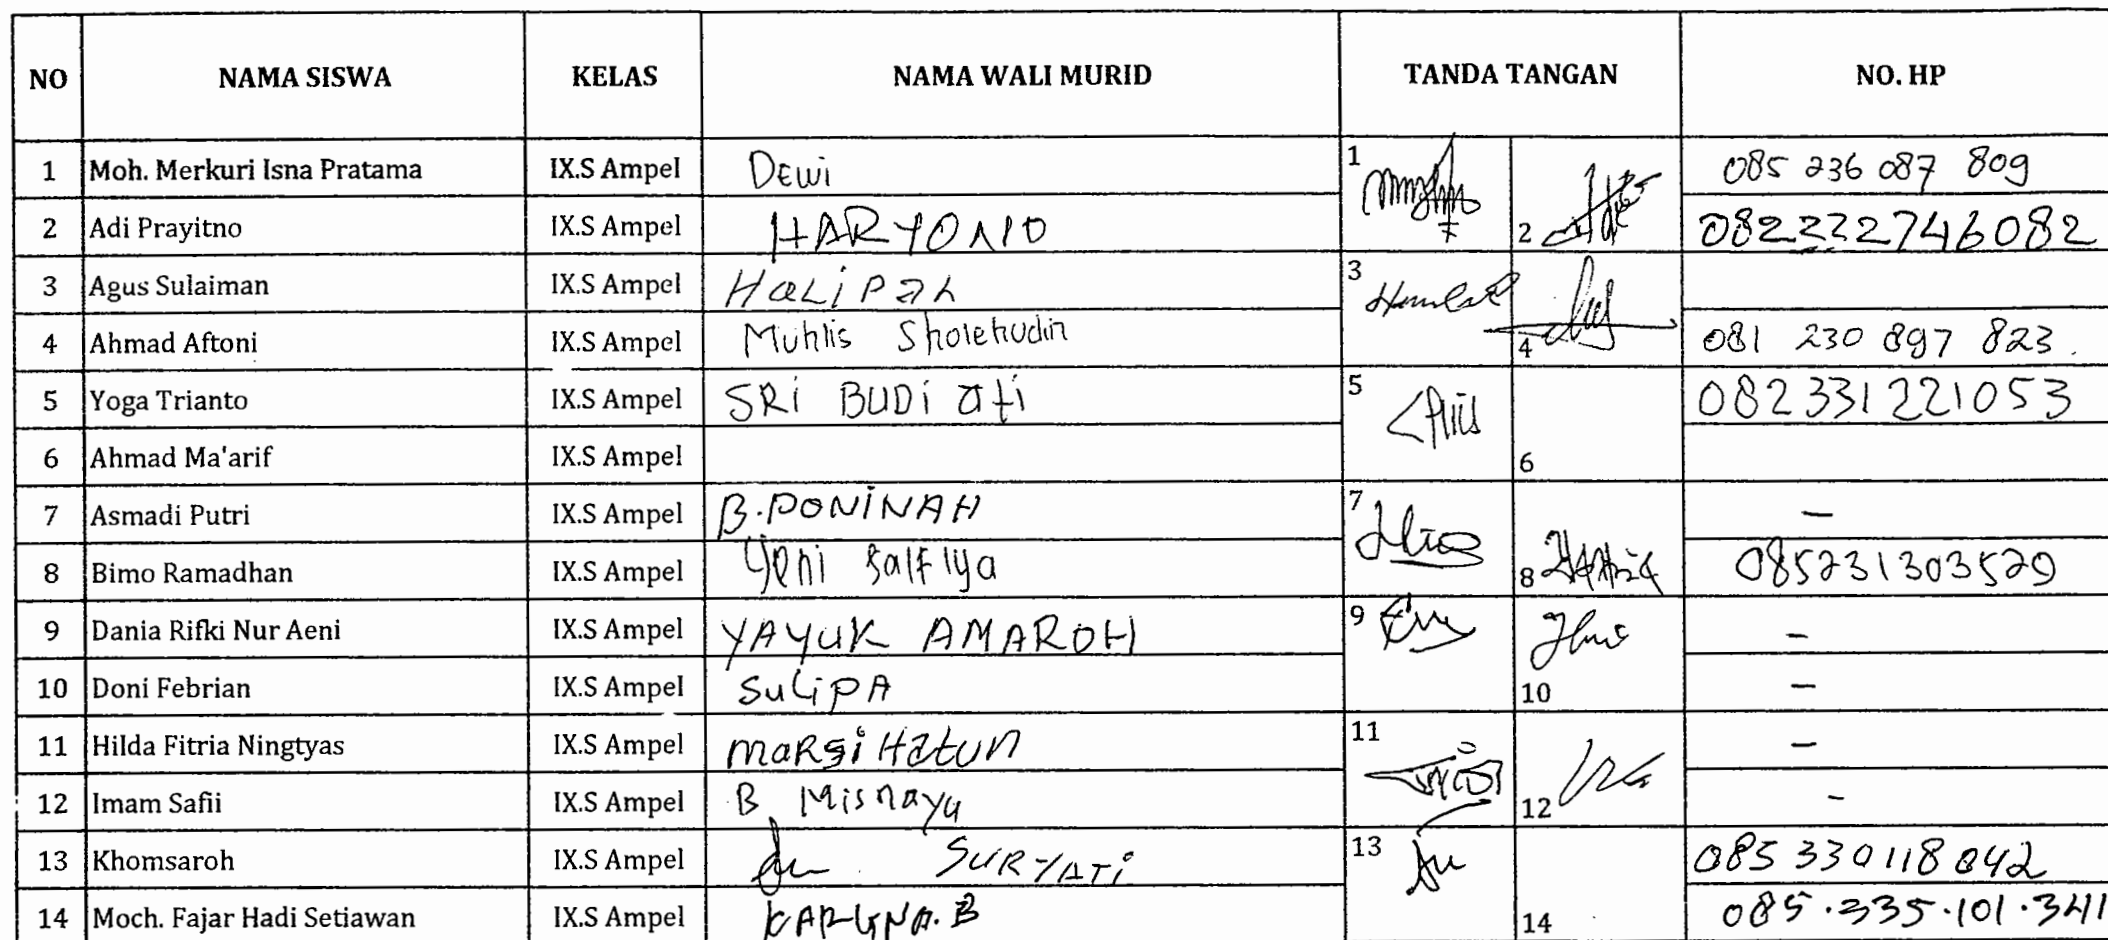 NO NAMA SISWA KELAS NAMA WALI MURID TANDA TANGAN NO. HP
1 Moh. Merkuri Isna Pratama IX.S Ampel Dewi 1 085 236 087 809
2 Adi Prayitno IX.S Ampel HARYONO 2 082232746082
3 Agus Sulaiman IX.S Ampel HaLiPah 3
4 Ahmad Aftoni IX.S Ampel Muhlis Sholehudin 4 081 230 897 823
5 Yoga Trianto IX.S Ampel SRi BUDi ati 5 082331221053
6 Ahmad Ma'arif IX.S Ampel 6
7 Asmadi Putri IX.S Ampel B.PONiNAH 7 –
8 Bimo Ramadhan IX.S Ampel Yeni Salfiya 8 085231303529
9 Dania Rifki Nur Aeni IX.S Ampel YAYUK AMAROH 9 –
10 Doni Febrian IX.S Ampel SuLipA 10 –
11 Hilda Fitria Ningtyas IX.S Ampel maRsiHatun 11 –
12 Imam Safii IX.S Ampel B Misnaya 12 -
13 Khomsaroh IX.S Ampel SURYATi 13 085330118042
14 Moch. Fajar Hadi Setiawan IX.S Ampel 14 085.335.101.341